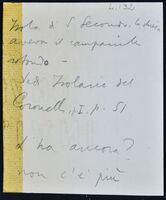 L. 132
Isola di S. Secondo, la chiesa
aveva il campanile
rotondo -
Vedi Isolario del
Coronelli, p I. p. 51
L'ha ancora?
non c'è più